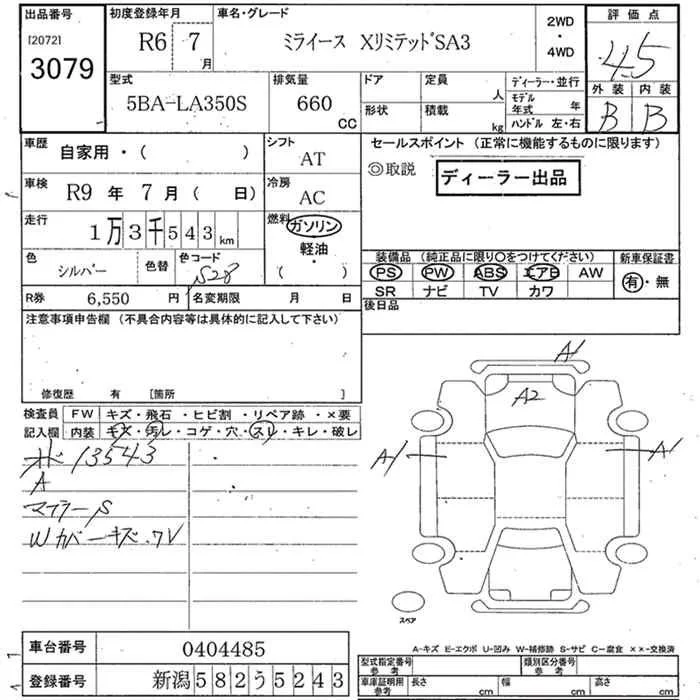 出品番号
[2072]
3079
初度登録年月
R6 7
月
車名・グレード
ミライース XリミテッドSA3
2WD
・
4WD
評価点
4.5
外装 内装
B B
型式
5BA-LA350S
排気量
660
CC
ドア
定員
人
形状
積載
kg
ディーラー・並行
モデル
年式 年
ハンドル 左・右
車歴
自家用・( )
シフト
AT
車検
R9 年 7 月 ( 日)
冷房
AC
走行
1万3千543km
燃料
ガソリン
軽油
・
( )
色
シルバー
色替
色コード
S28
R券 6,550 円
名変期限 月 日
セールスポイント (正常に機能するものに限ります)
◎取説
ディーラー出品
装備品 (純正品に限り〇をつけてください)
PS PW ABS エアB AW
SR ナビ TV カワ
新車保証書
有・無
後日品
注意事項申告欄 (不具合内容等は具体的に記入して下さい)
修復歴 有 [箇所 ]
検査員
記入欄
FW キズ・飛石・ヒビ割・リペア跡・×要
内装 キズ・汚レ・コゲ・穴・スレ・キレ・破レ
13543
A
マフラーS
Wカバーキズ.ワレ
A1
A2
A1
A1
スペア
A-キズ E-エクボ U-凹み W-補修跡 S-サビ C-腐食 ××-交換済
車台番号 0404485
登録番号 新潟582う5243
型式指定番号
参考
類別区分番号
参考
車庫証明用
参考
長さ cm
幅 cm
高さ cm